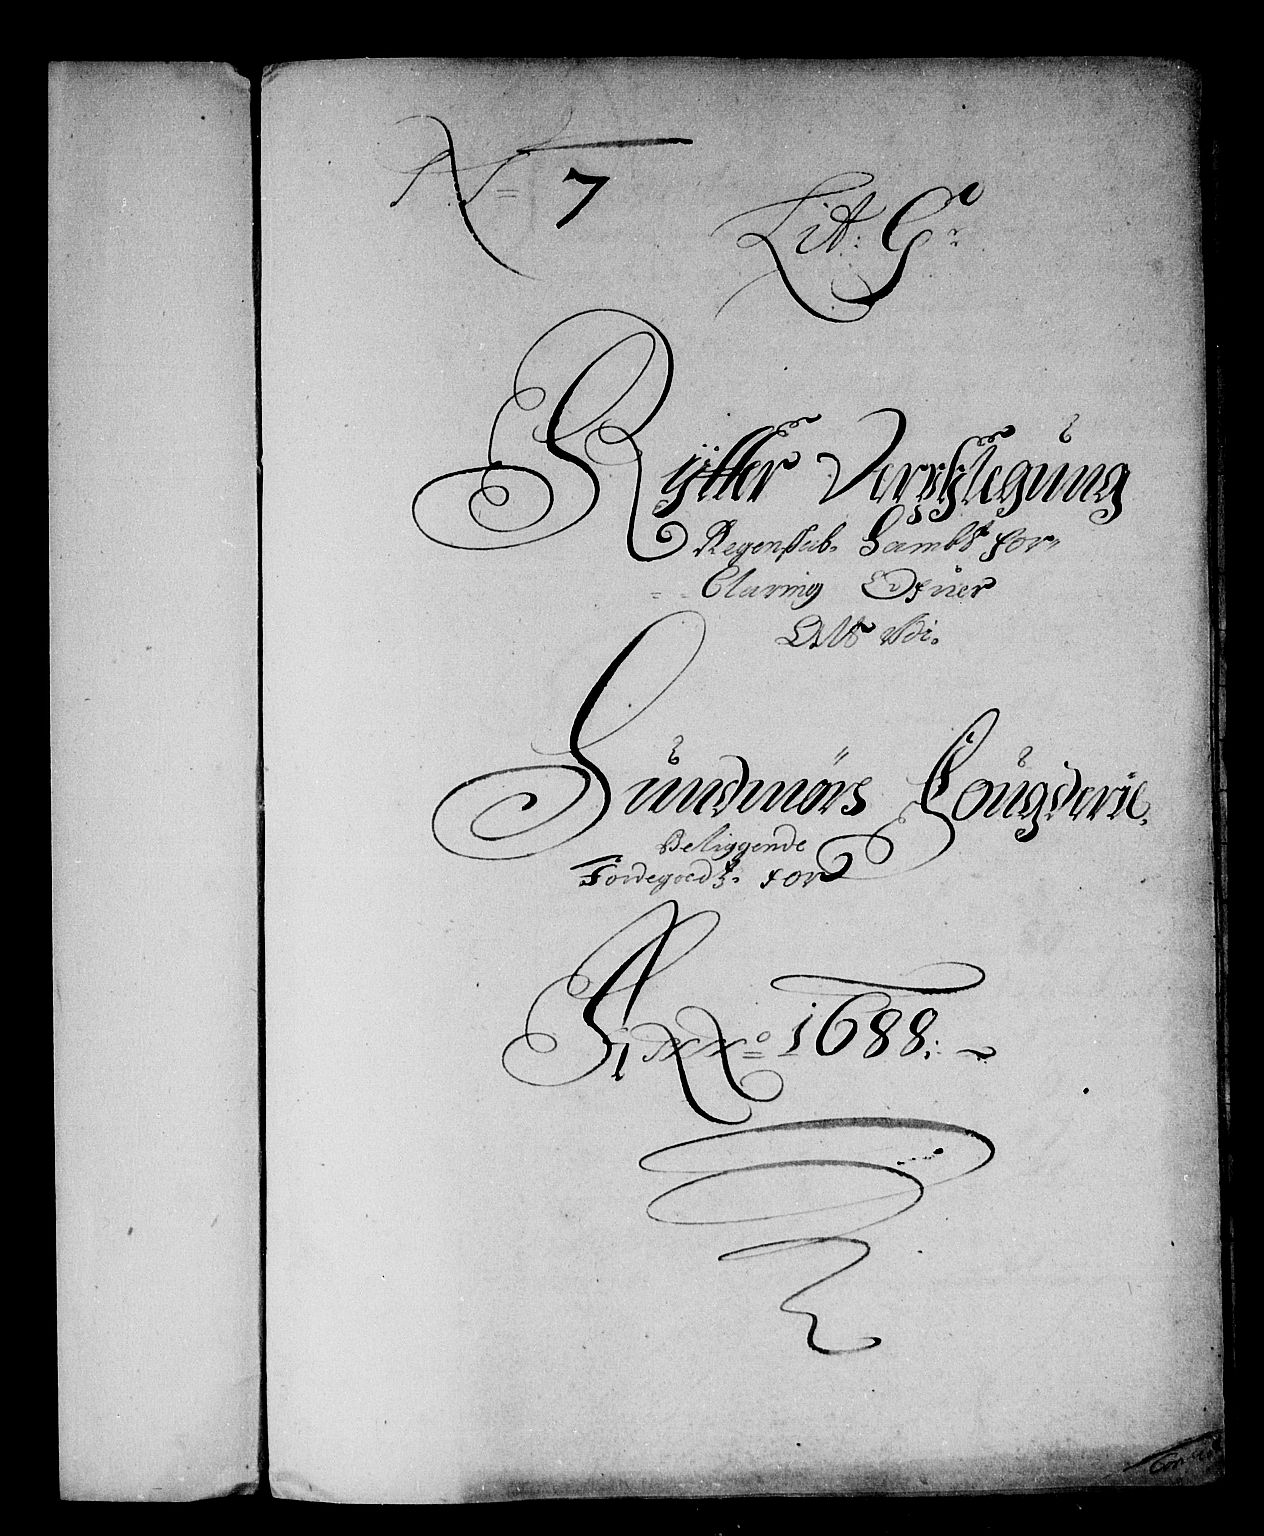 No 7
Lit: G:
Rytter Verpflegung
Regenskab. Sambt for-
Claring Efuer
Sundmørs Fougderie,
Beliggende
Jordegodtz. for
Anno 1688: